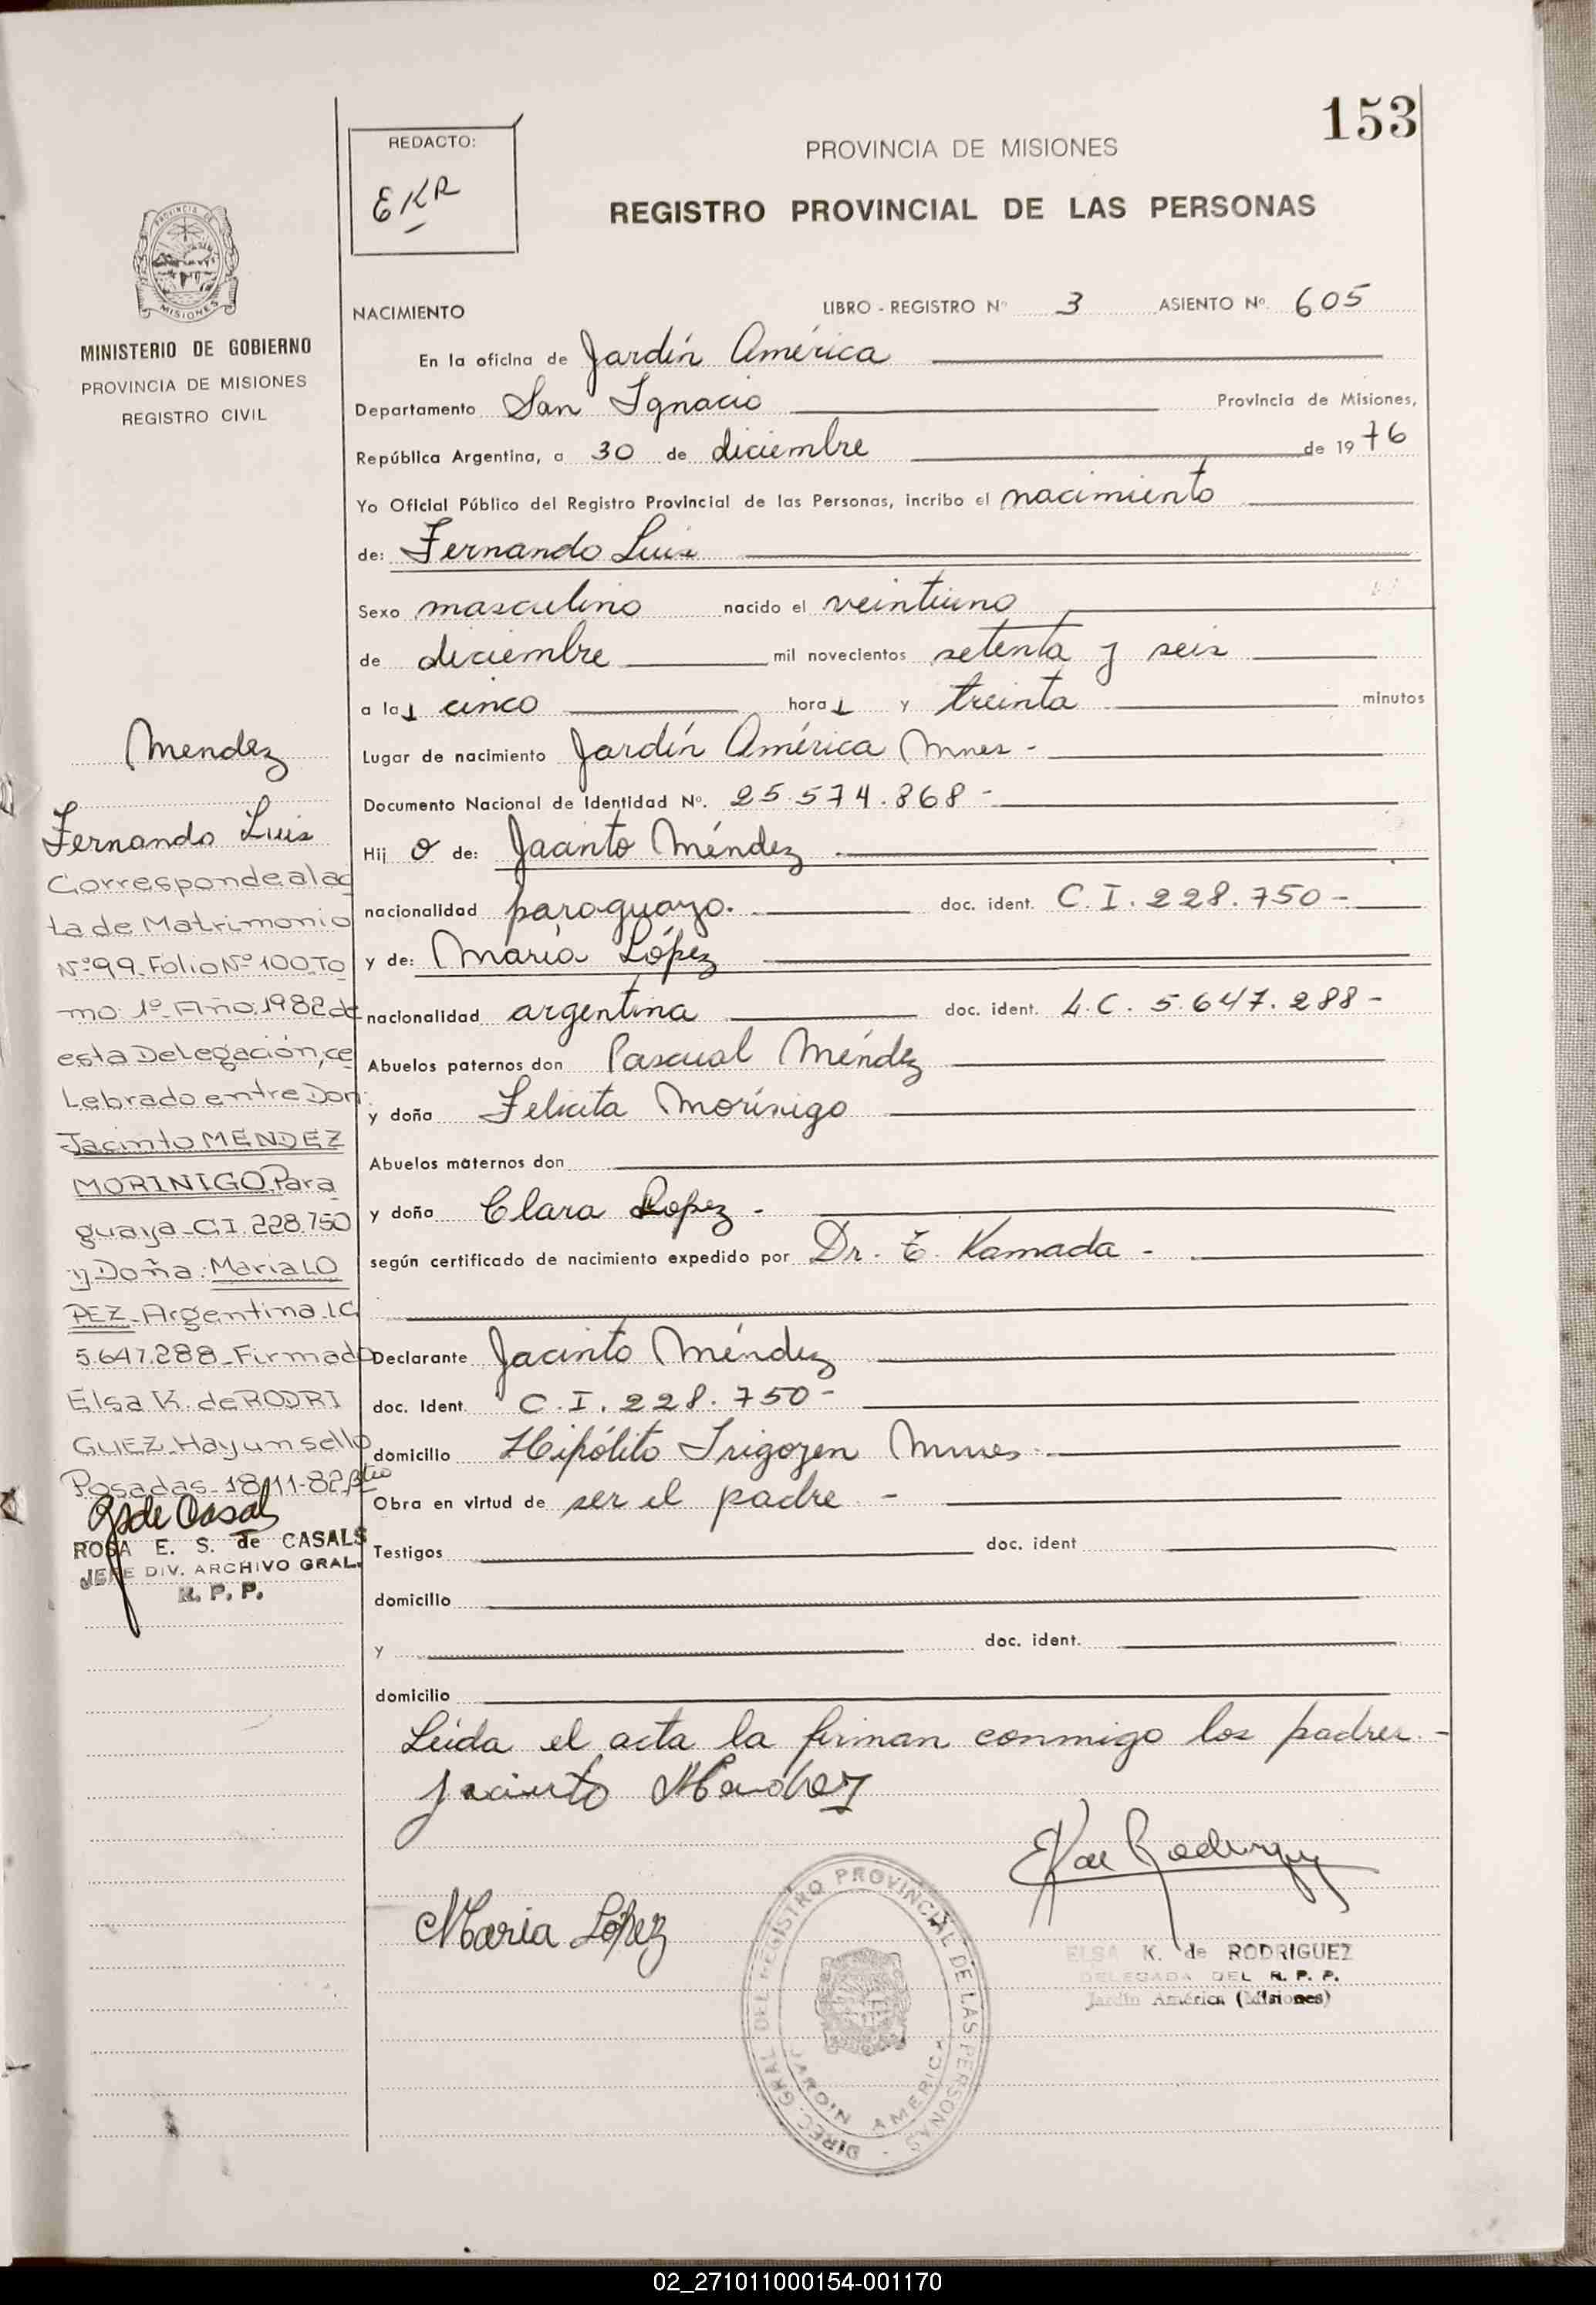 153
REDACTO:
EKR
PROVINCIA DE MISIONES
REGISTRO PROVINCIAL DE LAS PERSONAS
PROVINCIA DE
MISIONES
MINISTERIO DE GOBIERNO
PROVINCIA DE MISIONES
REGISTRO CIVIL
NACIMIENTO LIBRO - REGISTRO Nº 3 ASIENTO Nº 605
En la oficina de Jardín América
Departamento San Ignacio Provincia de Misiones,
República Argentina, a 30 de diciembre de 1976
Yo Oficial Público del Registro Provincial de las Personas, incribo el nacimiento
de: Fernando Luis
Sexo masculino nacido el veintiuno
de diciembre mil novecientos setenta y seis
a las cinco horas y treinta minutos
Lugar de nacimiento Jardín América Mnes -
Documento Nacional de Identidad Nº. 25.574.868 -
Hijo de: Jacinto Méndez
nacionalidad paraguayo. doc. ident. C.I. 228.750 -
y de: María López
nacionalidad argentina doc. ident. L.C. 5.647.288 -
Abuelos paternos don Pascual Méndez
y doña Felicita Morínigo
Abuelos maternos don
y doña Clara Lopez -
según certificado de nacimiento expedido por Dr. E. Kamada -
Declarante Jacinto Méndez
doc. Ident. C.I. 228.750 -
domicilio Hipólito Irigoyen Mnes
Obra en virtud de ser el padre -
Testigos doc. ident
domicilio
y doc. ident.
domicilio
Leída el acta la firman conmigo los padres. -
Jacinto Mendez
María López
EK de Rodriguez
ELSA K. de RODRIGUEZ
DELEGADA DEL R. P. P.
Jardín América (Misiones)
DIREC. GRAL. DEL REGISTRO PROVINCIAL DE LAS PERSONAS -
JARDIN AMERICA
Mendez
Fernando Luis
Corresponde al ac
ta de Matrimonio
Nº 99_Folio Nº 100_To
mo: 1º_Año.1982 de
esta Delegación, ce
Lebrado entre Don:
Jacinto MENDEZ
MORINIGO.Para
guaya_C.I. 228.750
y Doña: Maria LO
PEZ_Argentina_LC
5.647.288_Firmado
Elsa K. de RODRI
GUEZ_Hay un sello
Posadas_18-11-82
R S de Casals
ROSA E. S. de CASALS
JEFE DIV. ARCHIVO GRAL.
R. P. P.
02_271011000154-001170